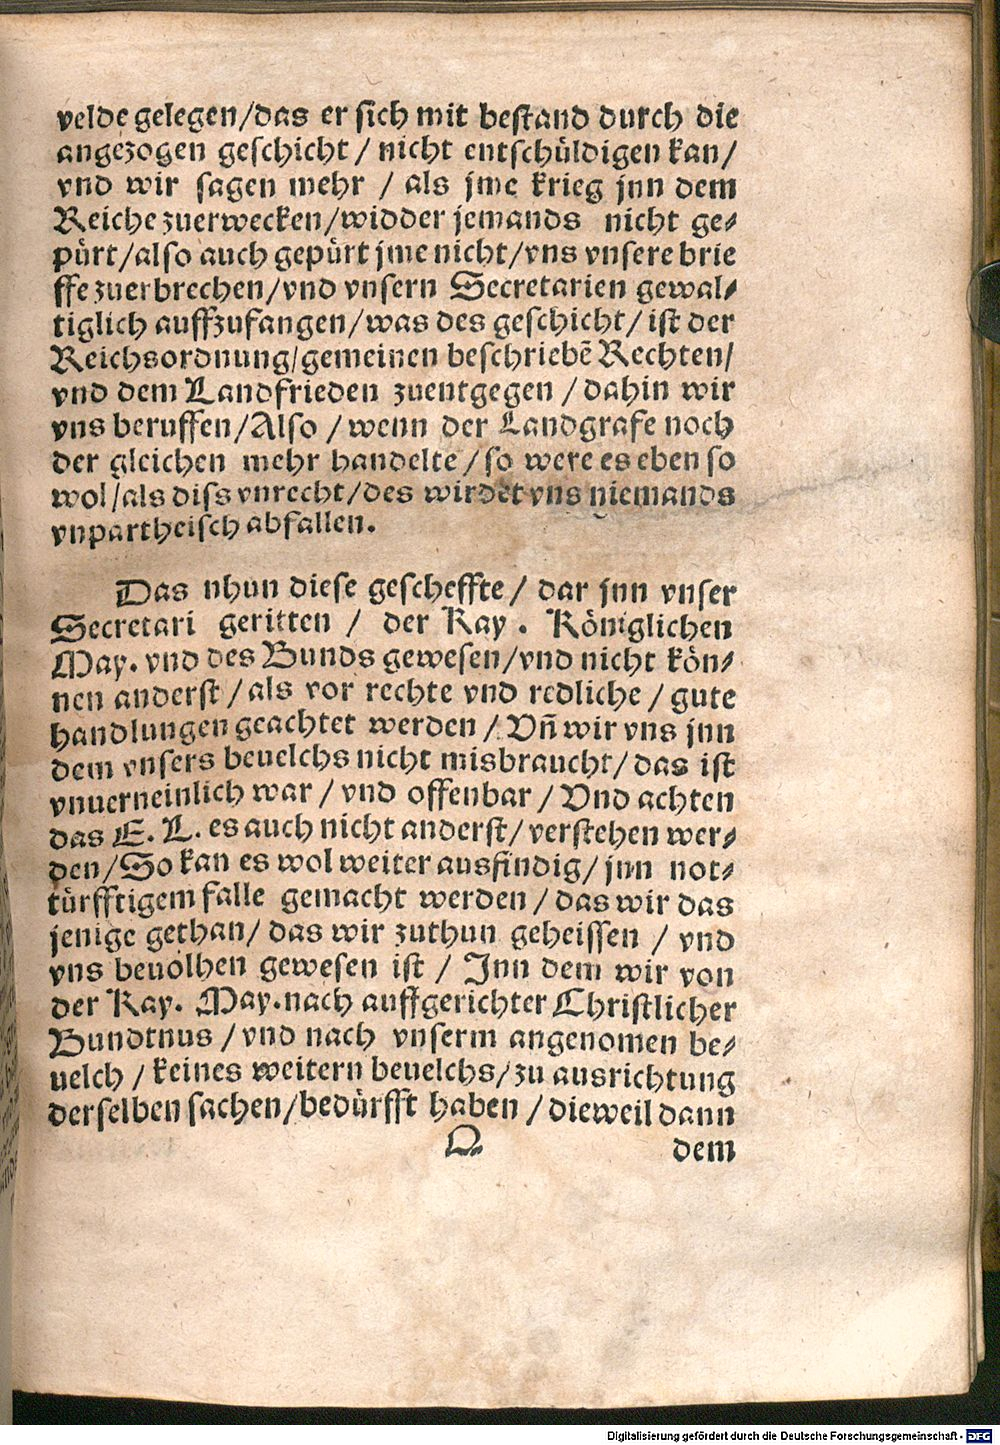 velde gelegen/das er sich mit bestand durch die
angezogen geschicht / nicht entschüldigen kan/
vnd wir sagen mehr / als jme krieg jnn dem
Reiche zuerwecken/widder jemands nicht ge-
pürt/also auch gepürt jme nicht/vns vnsere brie
ffe zuerbrechen/vnd vnsern Secretarien gewal-
tiglich auffzufangen/was des geschicht/ist der
Reichsordnung/gemeinen beschriebē Rechten/
vnd dem Landfrieden zuentgegen /dahin wir
vns beruffen/Also /wenn der Landgrafe noch
der gleichen mehr handelte /so were es eben so
wol/als diss vnrecht/des wirdet vns niemands
vnpartheisch abfallen.
Das nhun diese gescheffte/ dar jnn vnser
Secretari geritten / der Kay. Königlichen
May. vnd des Bunds gewesen/vnd nicht kön-
nen anderst /als vor rechte vnd redliche /gute
handlungen geachtet werden / Vñ wir vns jnn
dem vnsers beuelchs nicht misbraucht/das ist
vnuerneinlich war / vnd offenbar / Vnd achten
das E. L. es auch nicht anderst/verstehen wer-
den/So kan es wol weiter ausfindig/jnn not-
türfftigem falle gemacht werden /das wir das
jenige gethan/das wir zuthun geheissen / vnd
vns beuolhen gewesen ist / Inn dem wir von
der Kay. May.nach auffgerichter Christlicher
Bundtnus /vnd nach vnserm angenomen be-
uelch / keines weitern beuelchs/zu ausrichtung
derselben sachen/bedürfft haben /dieweil dann
dem
Digitalisierung gefördert durch die Deutsche Forschungsgemeinschaft - DFG